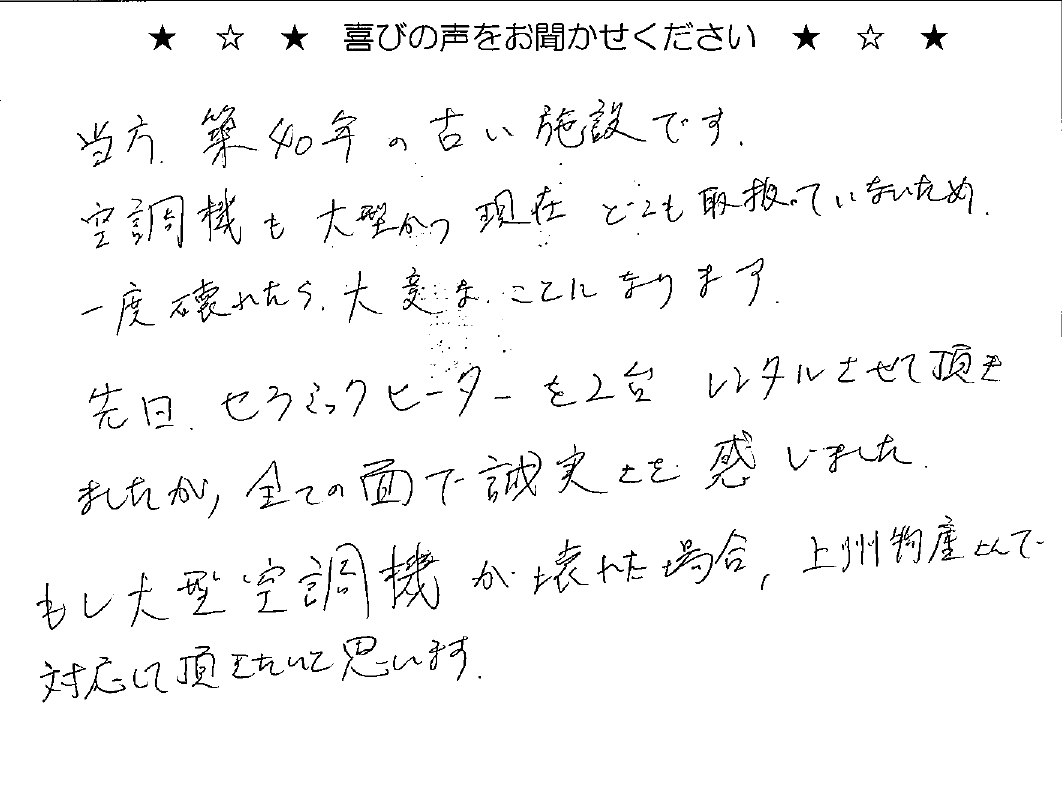 ★ ☆ ★ 喜びの声をお聞かせください ★ ☆ ★
当方、築40年の古い施設です。
空調機も大型かつ現在どこも取扱っていないため、
一度壊れたら、大変なことになります。
先日、セラミックヒーターを2台レンタルさせて頂き
ましたが、全ての面で誠実さを感じました。
もし大型空調機が壊れた場合、上州物産さんで
対応して頂きたいと思います。